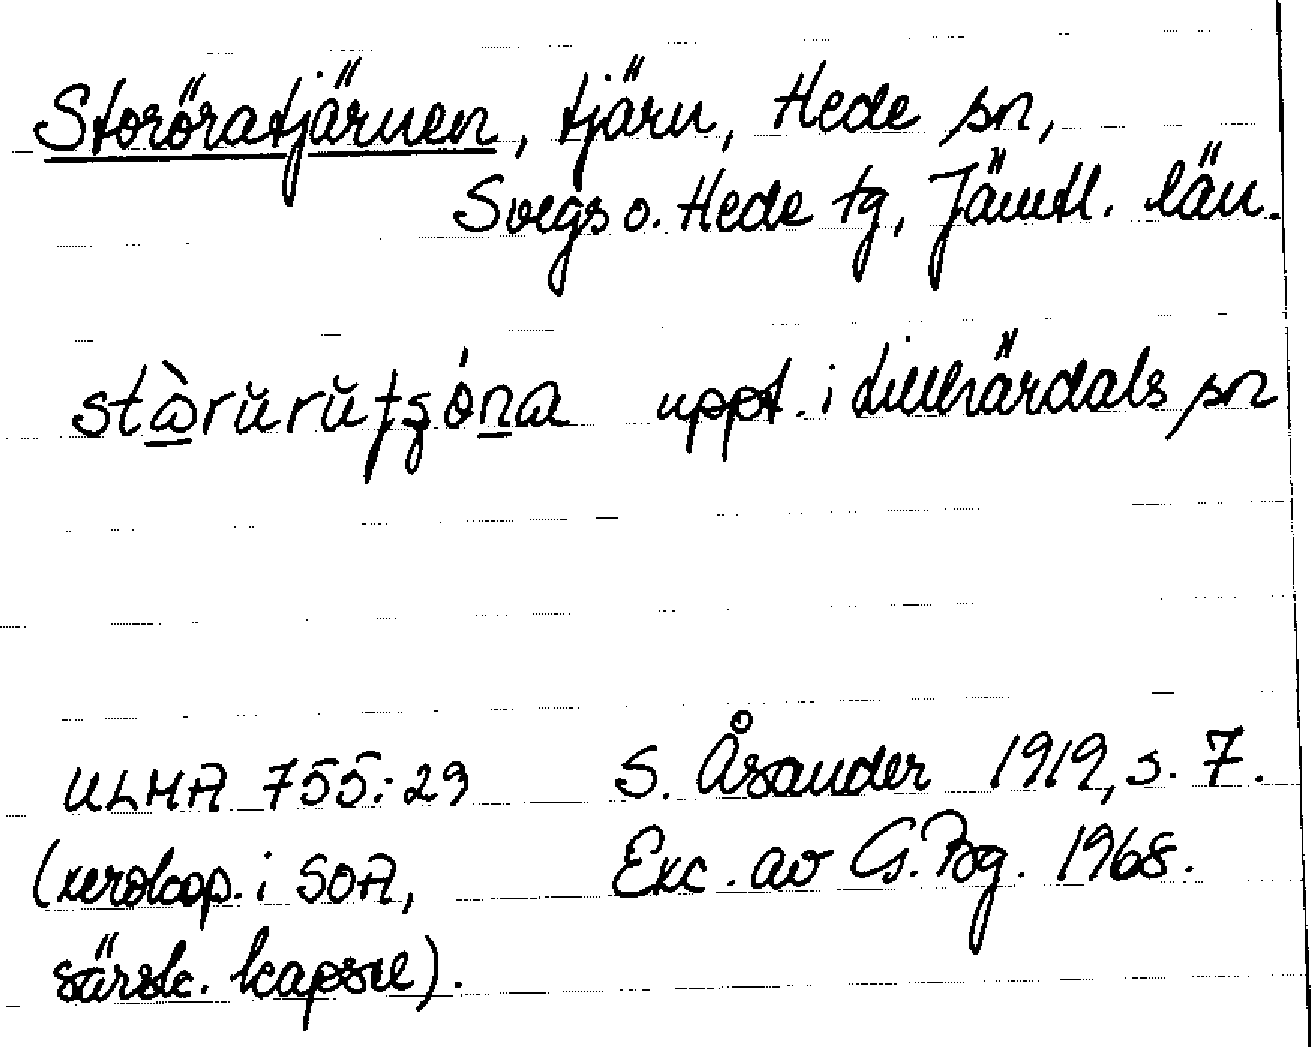 Storöratjärnen, tjärn, Hede sn,
Svegs o. Hede tg, Jämtl. län.
stàrŭrŭtʒóna uppt. i Lillhärdals sn
ULMA 755:29 S. Åsander 1919, s. 7.
(xerokop. i SOA, Exc. av G. Bg. 1968.
särsk. kapsel).